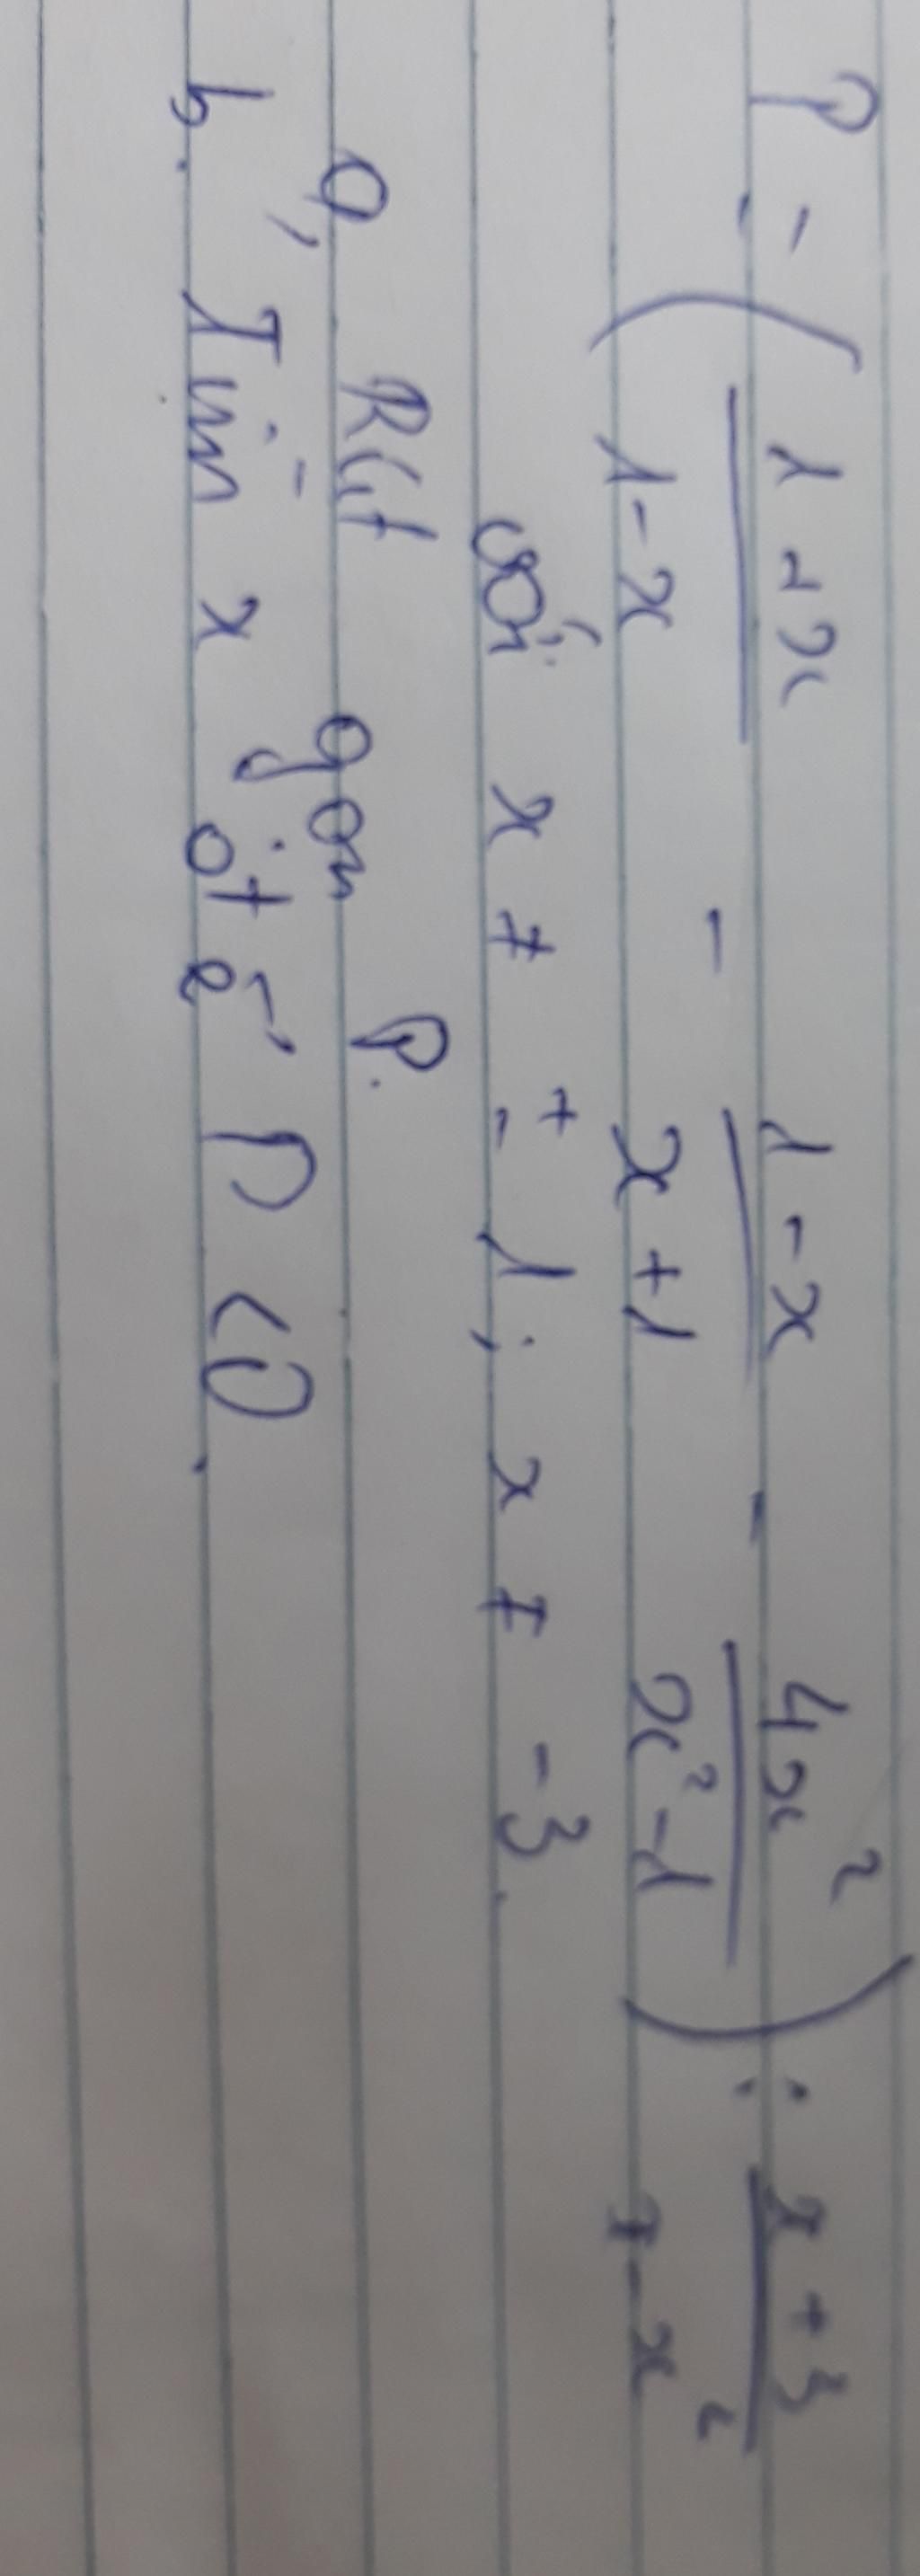 P = ( 1+x / 1-x - 1-x / x+1 - 4x² / x²-1 ) : x+3 / x-x²
với x ≠ ± 1; x ≠ -3.
a, Rút gọn P.
b. Tìm x để P < 0.